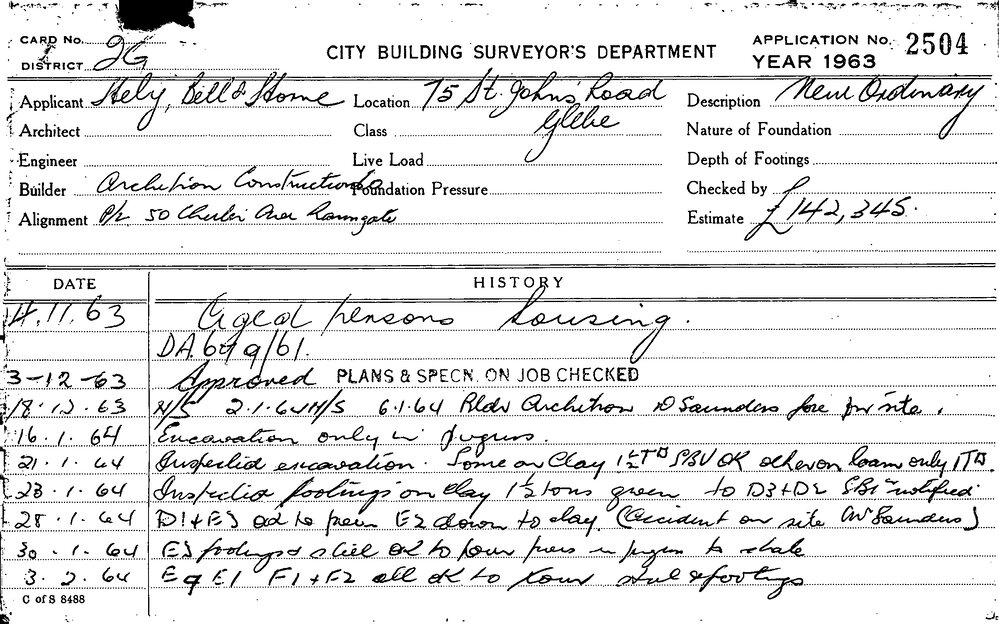 CARD No.
DISTRICT 2G
CITY BUILDING SURVEYOR'S DEPARTMENT
APPLICATION No. 2504
YEAR 1963
Applicant Hely, Bell & Horne Location 75 St. Johns Road Glebe Description New Ordinary
Architect Class Nature of Foundation
Engineer Live Load Depth of Footings
Builder Archetron Constructions Foundation Pressure Checked by
Alignment P/L 50 Ave Ramsgate Estimate £142,345.
DATE HISTORY
4.11.63 Aged persons housing.
DA. 679/61.
3-12-63 Approved PLANS & SPECN. ON JOB CHECKED
18.12.63 N/S 2.1.64 N/S 6.1.64 Bldr Archetron D Saunders fore on site.
16.1.64 Excavation only in progress.
21.1.64 Inspected excavation. Some on Clay OK other on loam only
23.1.64 Inspected footings on clay 1½ tons given to D3 + D2 notified
28.1.64 D1 + E3 E2 down to clay. (Accident on site Saunders)
30.1.64 E3 footings & steel OK to pour piers in to shale
3.2.64 E1 F1 + F2 all OK to pour steel & footings
C of S 8488